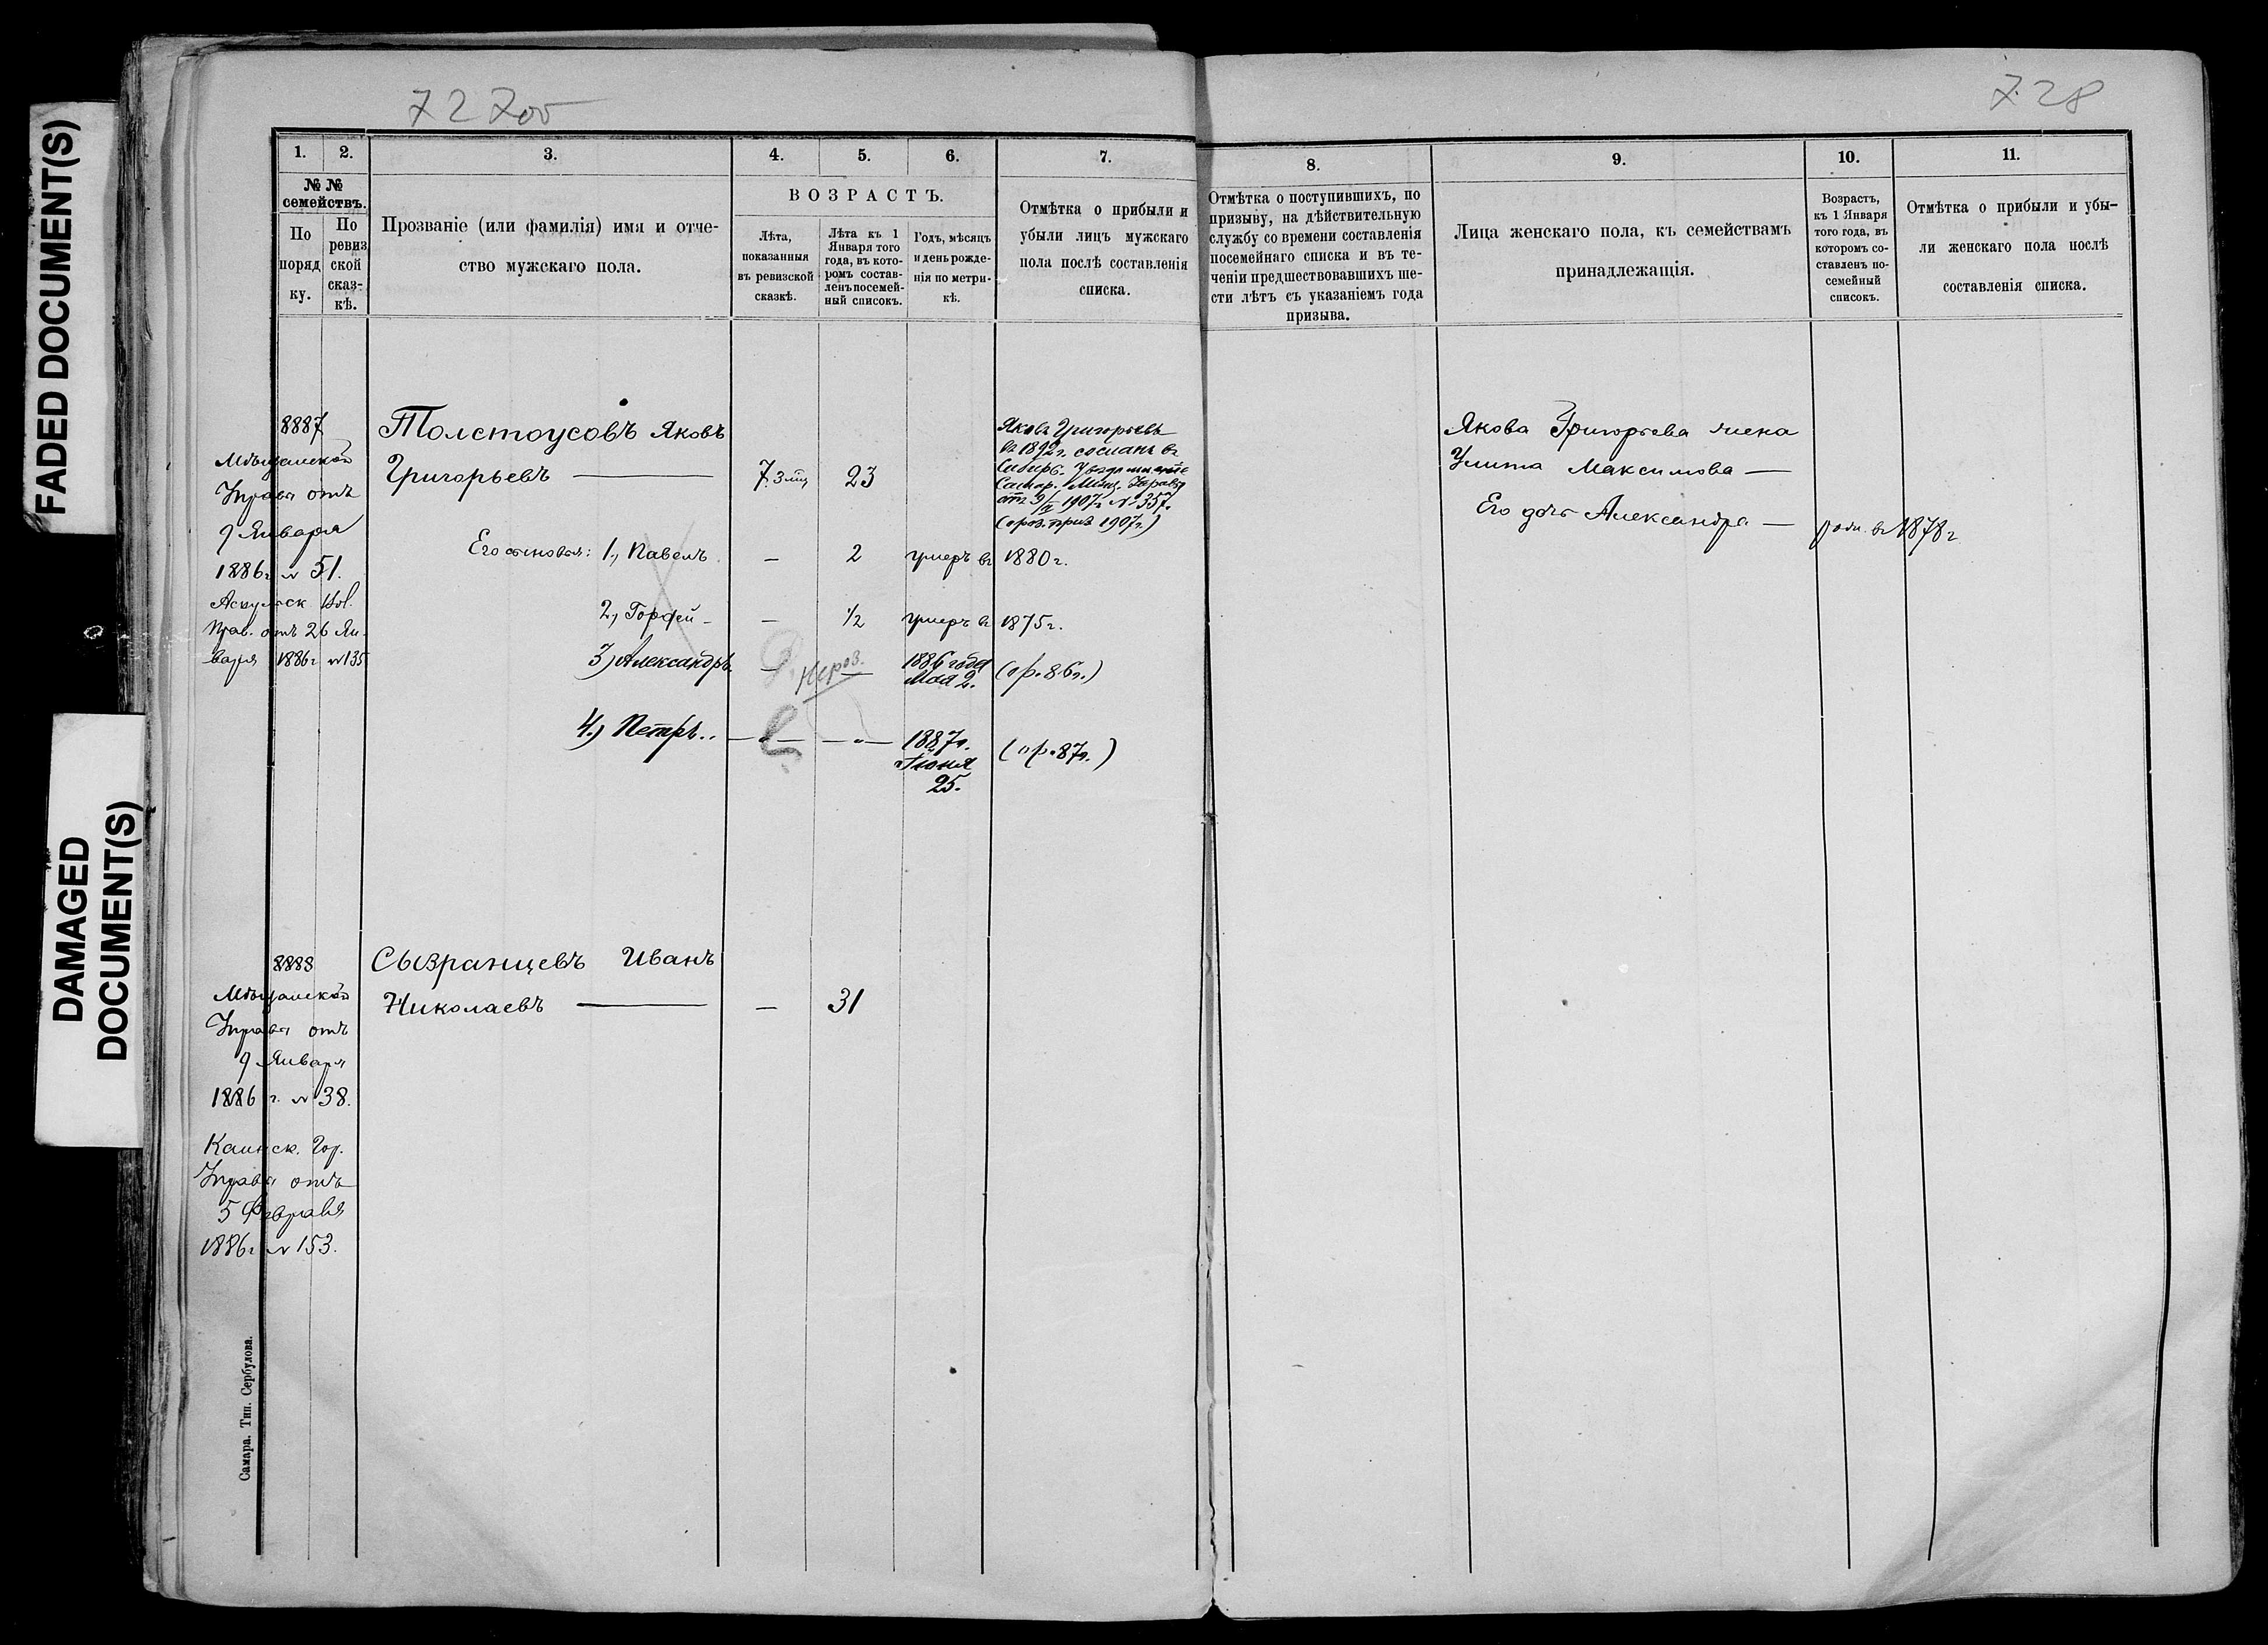 FADED DOCUMENT(S)
DAMAGED
DOCUMENT(S)
727об
728
1.
2.
3.
4.
5.
6.
7.
8.
9.
10.
11.
№ №
семействъ.
По
поряд
ку.
По
ревиз
ской
сказ-
кѣ.
Прозваніе (или фамилія) имя и отче-
ство мужскаго пола.
ВОЗРАСТЪ.
Лѣта,
показанныя
въ ревизской
сказкѣ.
Лѣта къ 1
Января того
года, въ кото-
ромъ состав-
ленъ посемей-
ный списокъ.
Годъ, мѣсяцъ
и день рожде-
нія по метри-
кѣ.
Отмѣтка о прибыли и
убыли лицъ мужскаго
пола послѣ составленія
списка.
Отмѣтка о поступившихъ, по
призыву, на дѣйствительную
службу со времени составленія
посемейнаго списка и въ те-
ченіи предшествовавшихъ ше-
сти лѣтъ съ указаніемъ года
призыва.
Лица женскаго пола, къ семействамъ
принадлежащія.
Возрастъ,
къ 1 Января
того года, въ
которомъ со-
ставленъ по-
семейный
списокъ.
Отмѣтка о прибыли и убы-
ли женскаго пола послѣ
составленія списка.
8887
Мѣщанской
Управы отъ
9 Января
1886г. № 51.
Аскульск Вол.
Прав. отъ 26 Ян-
варя 1886г. №135
Толстоусовъ Яковъ
Григорьевъ —
7. 3 мц
23
Яковъ Григорьевъ
въ 1892г. сосланъ въ
Сибирь.
Самар. Мѣщ. Управы
1907г. №357.
(ороз. приз 1907г.)
Якова Григорьева жена
Улита Максимова —
Его дочь Александра — роди. въ 1878г
Его сыновья: 1., Павелъ
— 2 умеръ въ 1880г.
2., Горфей —
— ½ умеръ въ 1875г.
3) Александръ
— нероз. — 1886 года
Мая 2. (ор. 86г.)
4.) Петръ.. — 1887г.
Іюня
25.
(ор. 87г.)
8888
Мѣщанской
Управы отъ
9 Января
1886 г. № 38.
Каинск. Гор.
Управы отъ
5 Февраля
1886г № 153.
Сызранцевъ Иванъ
Николаевъ — — 31
Самара. Тип. Сербулова.